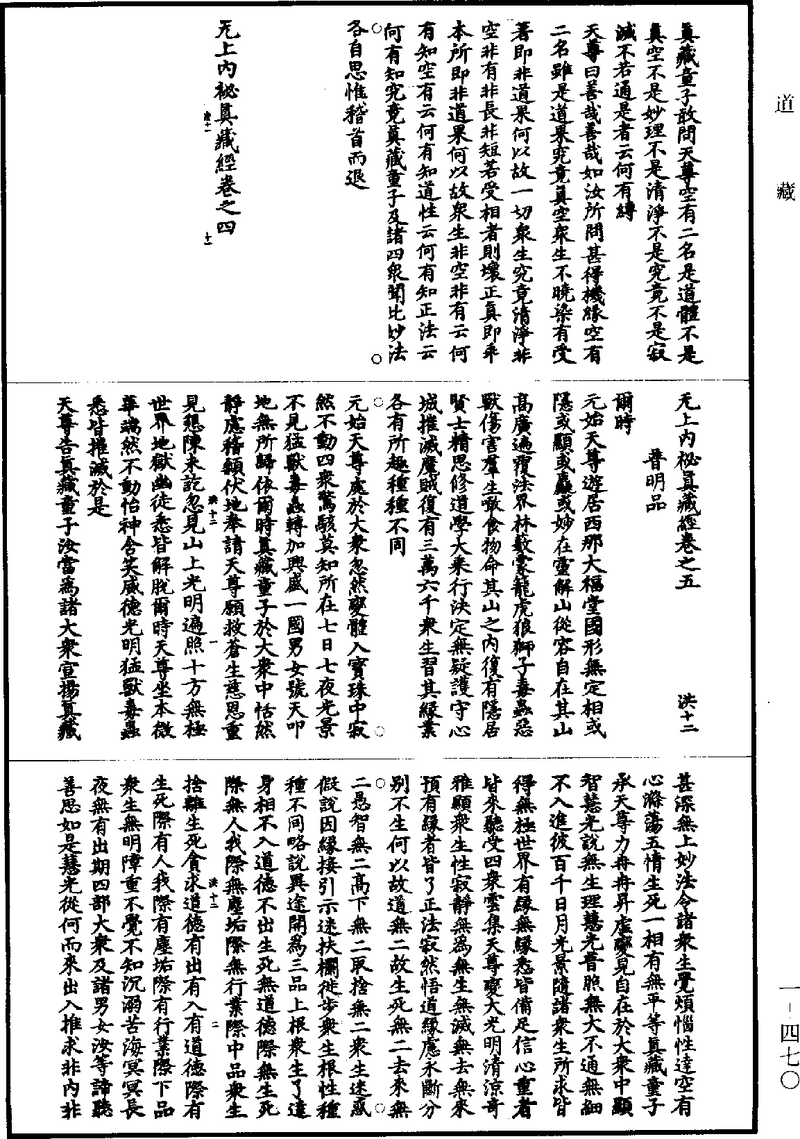 道藏
真藏童子敢問天尊空有二名是道體不是
真空不是妙理不是清淨不是究竟不是寂
滅不若通是者云何有縛
天尊曰善哉善哉如汝所問甚得機緣空有
二名雖是道果究竟真空衆生不曉染有受
著即非道果何以故一切衆生究竟清淨非
空非有非長非短若受相者則壞正真即乖
本所即非道果何以故衆生非空非有云何
有知空有云何有知道性云何有知正法云
何有知究竟真藏童子及諸四衆聞比妙法
各自思惟稽首而退
无上內祕真藏經卷之四
洪十一
十一
无上內祕真藏經卷之五
洪十二
普明品
爾時
元始天尊遊居西那大福堂國形無定相或
隱或顯或麤或妙在靈解山從容自在其山
高廣遍覆法界林藪蒙籠虎狼獅子毒蟲惡
獸傷害羣生噉食物命其山之內復有隱居
賢士精思修道學大乘行決定無疑護守心
城摧滅魔賊復有三萬六千衆生習其緣業
各有所趣種種不同
元始天尊處於大衆忽然變體入寶珠中寂
然不動四衆驚駭莫知所在七日七夜光景
不見猛獸毒蟲轉加興盛一國男女號天叩
地無所歸依爾時真藏童子於大衆中恬然
靜慮稽顙伏地奉請天尊願救蒼生慈恩重
洪十二
一
見懇陳未訖忽見山上光明遍照十方無極
世界地獄幽徒悉皆解脫爾時天尊坐本微
華端然不動怡神含笑威德光明猛獸毒蟲
悉皆摧滅於是
天尊告真藏童子汝當爲諸大衆宣揚真藏
甚深無上妙法令諸衆生覺煩惱性達空有
心滌蕩五情生死一相有無平等真藏童子
承天尊力冉冉昇虛變見自在於大衆中顯
智慧光說無生理慧光普照無大不通無細
不入進彼百千日月光景隨諸衆生所求皆
得無極世界有緣無緣悉皆備足信心重者
皆來聽受四衆雲集天尊變大光明清涼奇
雅願衆生性寂靜無爲無生無滅無去無來
預有緣者皆了正法寂然悟道緣慮永斷分
別不生何以故道無二故生死無二去來無
二愚智無二高下無二取捨無二衆生迷惑
假說因緣接引示迷扶欄徙步衆生根性種
種不同略說異途開爲三品上根衆生了達
身相不入道德不出生死無道德際無生死
際無人我際無塵垢際無行業際中品衆生
洪十二
二
捨離生死貪求道德有出有入有道德際有
生死際有人我際有塵垢際有行業際下品
衆生無明障重不覺不知沉溺苦海冥冥長
夜無有出期四部大衆及諸男女汝等諦聽
善思如是慧光從何而來出入推求非內非
一-四七〇